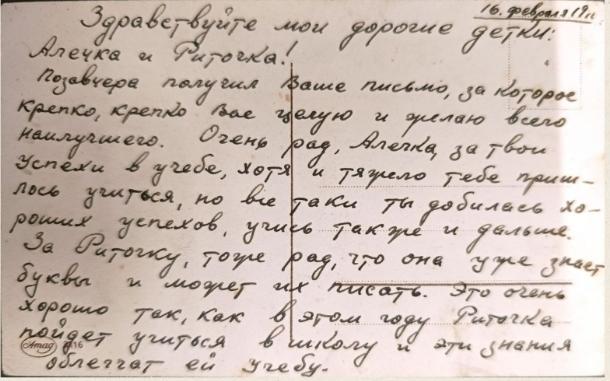 16. февраля 19
Здравствуйте мои дорогие детки:
Алечка и Риточка!
Позавчера получил Ваше письмо, за которое
крепко, крепко Вас целую и желаю всего
наилучшего. Очень рад, Алечка, за твои
успехи в учебе, хотя и тяжело тебе приш-
лось учиться, но все таки ты добилась хо-
роших успехов, учись также и дальше.
За Риточку, тоже рад, что она уже знает
буквы и может их писать. Это очень
хорошо так, как в этом году Риточка
пойдет учиться в школу и эти знания
облегчат ей учебу.
Amag